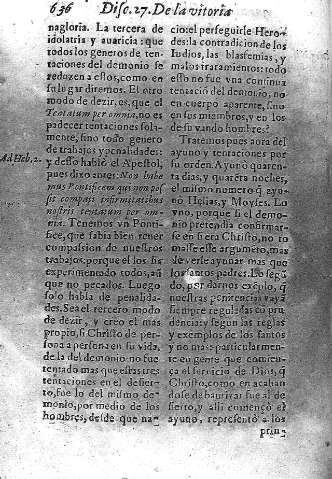 636 Disc. 27. De la vitoria
nagloria. La tercera de
idolatria y auaricia: que
todos los generos de ten-
taciones del demonio se
reduzen a estos, como en
su lugar diremos. El otro
modo de dezir, es, que el
Tentatum per omnia, no es
padecer tentaciones sola-
mente, sino todo genero
de trabajos y penalidades:
Ad Heb. 2.
y desso habló el Apostol,
pues dixo antes: Non habe
mus Pontificem qui non pos-
sit compati infirmitatibus
nostris tentatum per om-
nia. Tenemos vn Ponti-
fice, que sabia bien tener
compassion de nuestros
trabajos, porque el los há
experimentado todos, aũ
que no pecados. Luego
solo habla de penalida-
des. Sea el tercero modo
de dezir, y creo el mas
proprio, q̃ Christo de per-
sona a persona en su vida,
de la del demonio no fue
tentado mas que estas tres
tentaciones en el desier-
to, fue lo del mismo de-
monio, por medio de los
hombres, desde que na-
cio: el perseguirle Hero-
des: la contradicion de los
Iudios, las blasfemias, y
malos tratamientos: todo
esto no fue vna continua
tentació del demonio, no
en cuerpo aparente, sino
en sus miembros, y en los
de su vando hombres?
Tratemos pues aora del
ayuno y tentaciones por
su orden. Ayunó quaren-
ta dias, y quarẽta noches,
el mismo numero q̃ ayu-
nó Helias, y Moyses. Lo
vno, porque si el demo-
nio pretendia confirmar-
se en si era Christo, no to
masse esse argumẽto, mas
de verse ayunar mas que
los santos padres. Lo segũ
do, por darnos exẽplo, q̃
nuestras penitencias vayã
siempre reguladas cõ pru
dencia: y segun las reglas
y exemplos de los santos
y no mas: particularmen-
te en gente que comien-
ça el seruicio de Dios, q̃
Christo, como en acaban
dose de bautizar fue al de
sierto, y alli començó el
ayuno, representó a los
prin-